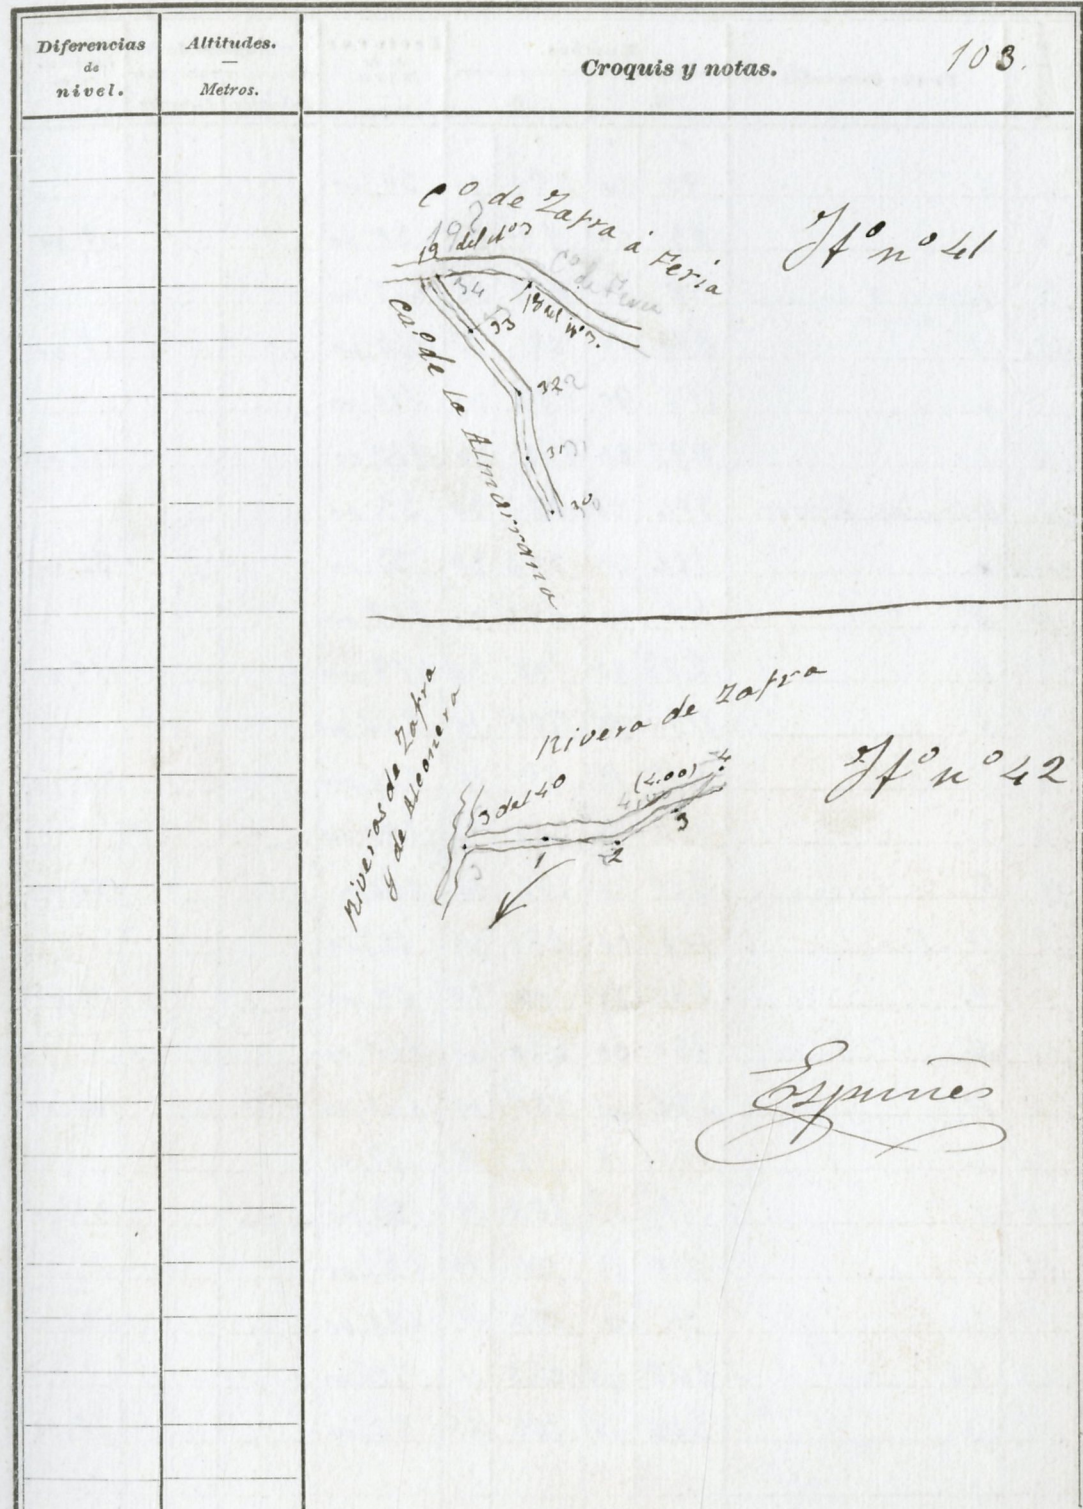 Diferencias
de
nivel.
Altitudes.
—
Metros.
Croquis y notas.
103.
Cº de Zafra á Feria
Itº nº 41
19 del nº 3
Cº de Feria
34
18 del nº 3.
33
32
31
30
Cº de la Almarrana
Rivera de Zafra
Itº nº 42
Riveras de Zafra
y de Alconera
3 del 40
(4.00)
4
3
2
1
3
Espuñes